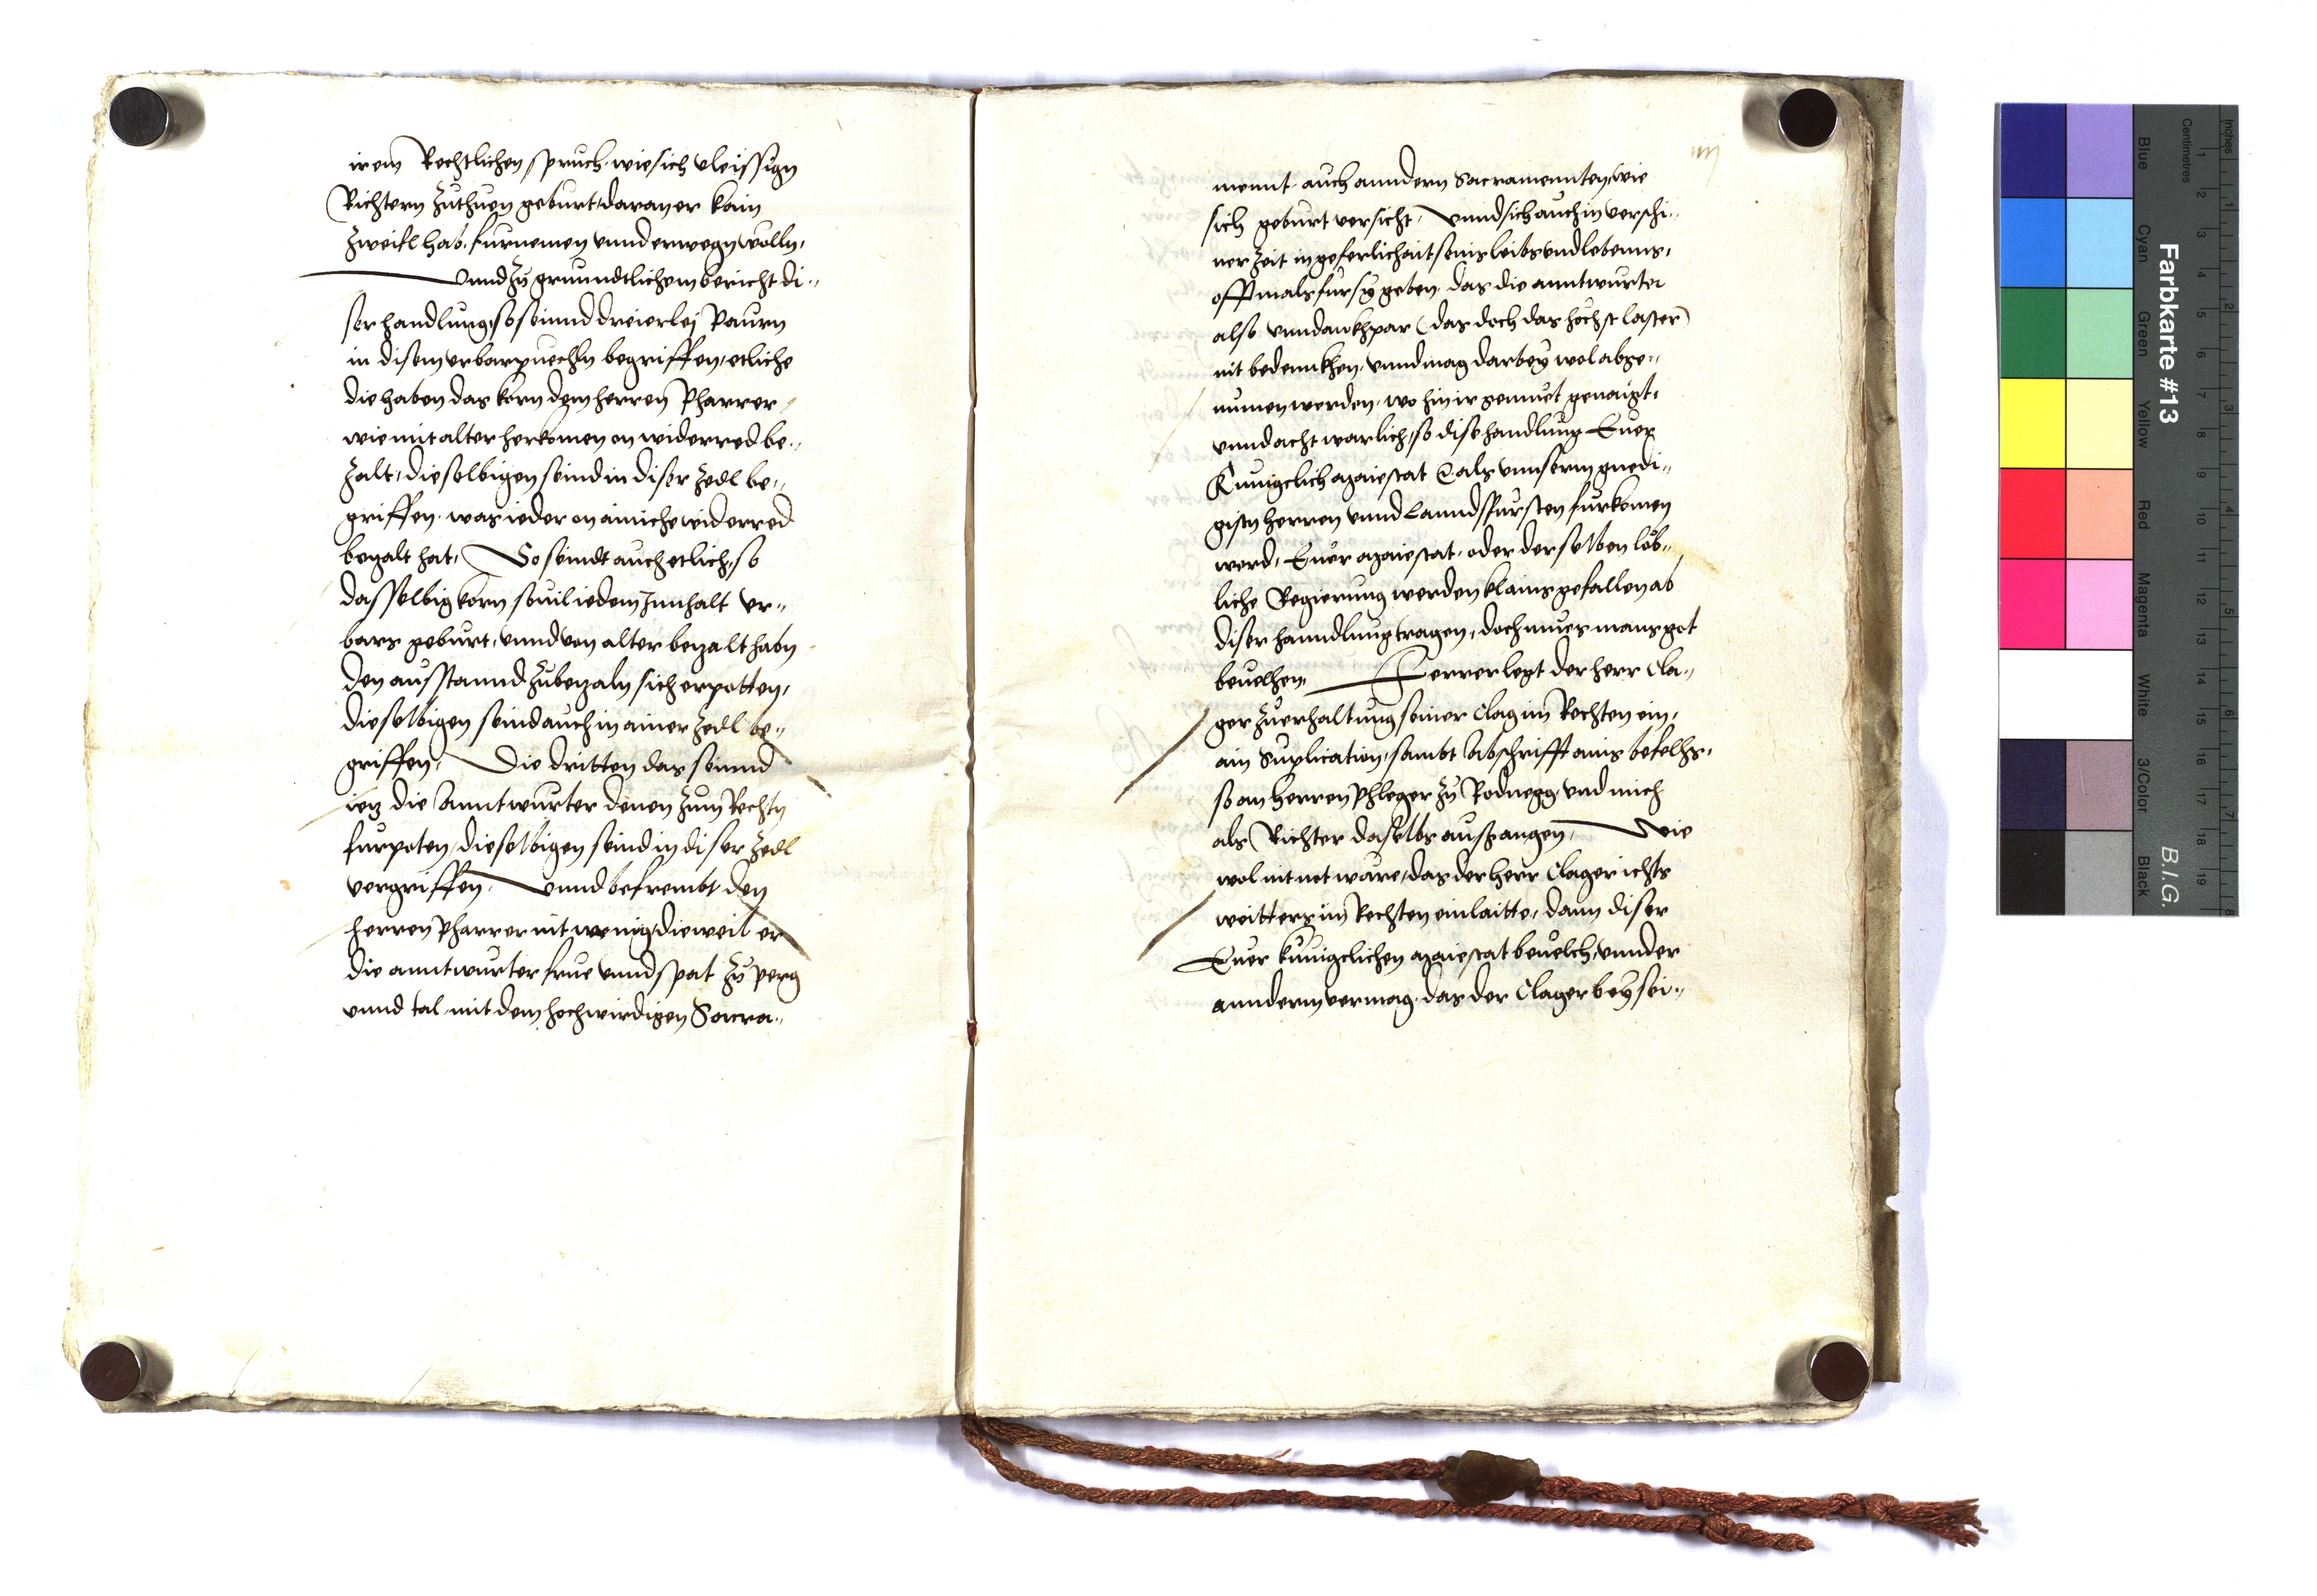 irem Rechtlichen spruch, wie sich vleissign
Richtern zuthuen geburt, daran er kain
zweifl hab, furnemen vnnd erwegn wolln,
vnnd zu grunndtlichem bericht di„
ser handlung, so seinnd dreierlej Paurn
in disem vrbarpuechln begriffen, etliche
die haben das korn dem herren Pharrer
wie mit alter herkomen on widerred be„
zalt, dieselbigen seind in diser zedl be„
griffen, was ieder on ainiche widerred
bezalt hat, So seindt auch etlich, so
dasselbig korn souil iedem Innhalt vr„
bars geburt, vnnd von alter bezalt habn
den ausstannd zubezaln sich erpotten,
dieselbigen seind auch in ainer zedl be„
griffen, Die dritten das seinnd
iez die Anntwurter denen zum Rechtn
furpoten, dieselbigen seind in diser zedl
vergriffen, vnnd befrembt den
herren Pharrer nit wenig, dieweil er
die anntwurter frue vnnd spat zu perg
vnnd tal mit dem hochwirdigen Sacra„
iiij
mennt, auch anndern Sacramennten, wie
sich geburt versicht, vnnd sich auch in verschi„
ner zeit in geferlichait seins leibs vnd lebenns,
offtmals fur sy geben, das die anntwurter
also vnndankhpar (das doch das höchst laster)
nit bedennkhen, vnnd mag darbey wol abge„
numen werden, wo hin ir gemuet genaigt,
vnnd acht warlich, so dise handlung Euer
Kunigclich Maiestat als vnnserm gnedi„
gistn herren vnnd Lanndsfursten furkomen
werd, Euer Maiestat, oder derselben löb„
liche Regierung werden klains gefallen ab
diser hanndlung tragen, doch mues mans got
beuelhen, Ferrer legt der herr Cla„
ger zuerhaltung seiner Clag im Rechten ein,
ain Suplication, sambt Abschrifft ains befelhs,
so an herren Phleger zu Rodnegg, vnd mich
als Richter daselbs ausgangen, Wie
wol nit not ware, das der herr Clager ichts
weitters im Rechten einlaitte, dann diser
Euer kunigclichen Maiestat beuelch, vnnder
annderm vermag, das der Clager bey sei„
Farbkarte #13
B.I.G.
Blue
Cyan
Green
Yellow
Red
Magenta
White
3/Color
Black
Centimetres
Inches
1 2 3 4 5 6 7 8 9 10 11 12 13 14 15 16 17 18 19
1 2 3 4 5 6 7 8